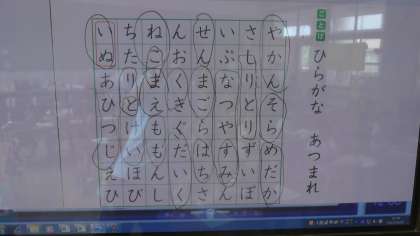 ことば
ひらがな あつまれ
やかんそらめだか
さしりとりずいぼ
いぶなつやすみん
せんまごらはちさ
んおくぎぐだいく
ねこまえももんし
ちたりとけいほび
いぬあひつじえひ